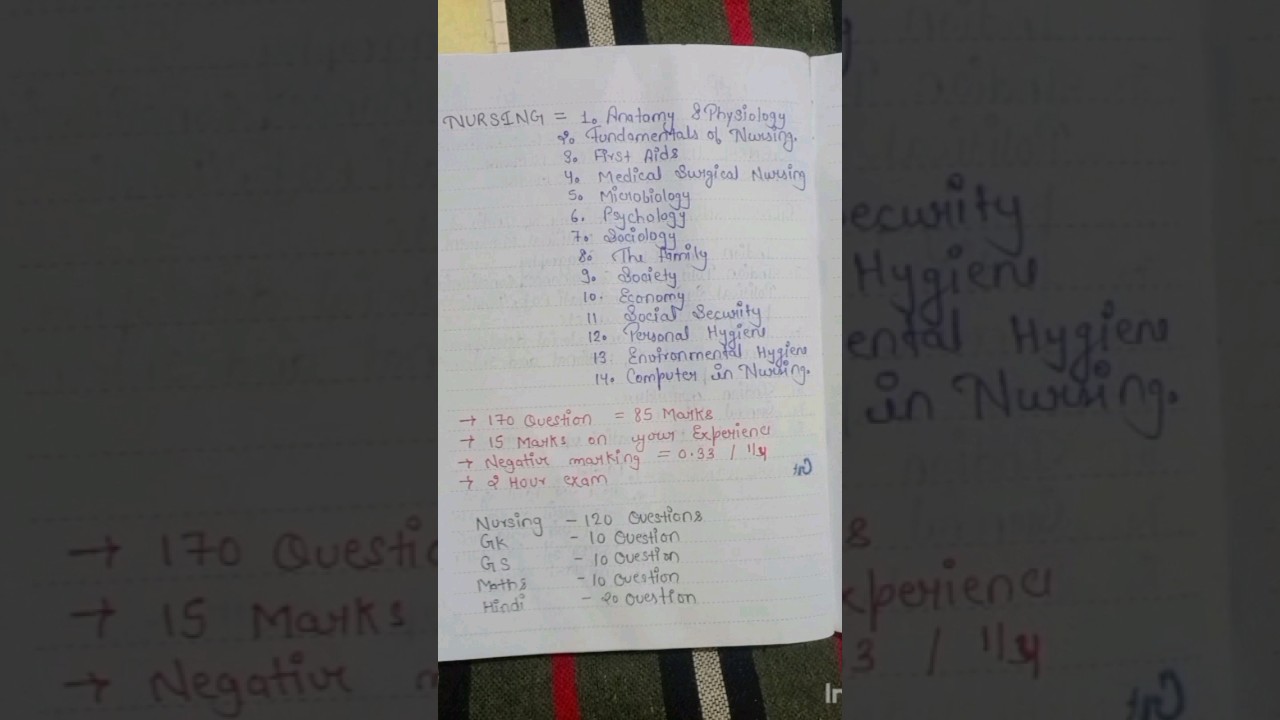 NURSING = 1. Anatomy & Physiology
2. Fundamentals of Nursing.
3. First Aids
4. Medical Surgical Nursing
5. Microbiology
6. Psychology
7. Sociology
8. The family
9. Society
10. Economy
11 Social Security
12. Personal Hygiene
13 Environmental Hygiene
14. Computer in Nursing.
→ 170 Question = 85 Marks
→ 15 Marks on your Experience
→ Negative marking = 0.33 /
→ 2 Hour exam
Nursing - 120 Questions
GK - 10 Question
GS - 10 Question
Maths - 10 Question
Hindi - 20 Question